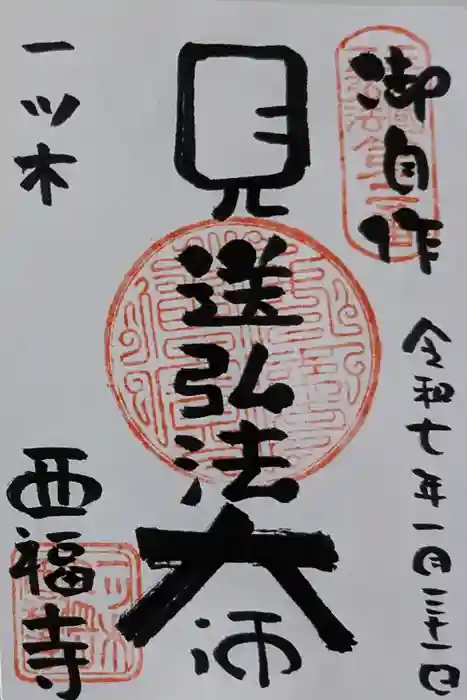 御自作
令和七年一月三十一日
見送弘法大師
一ツ木
西福寺